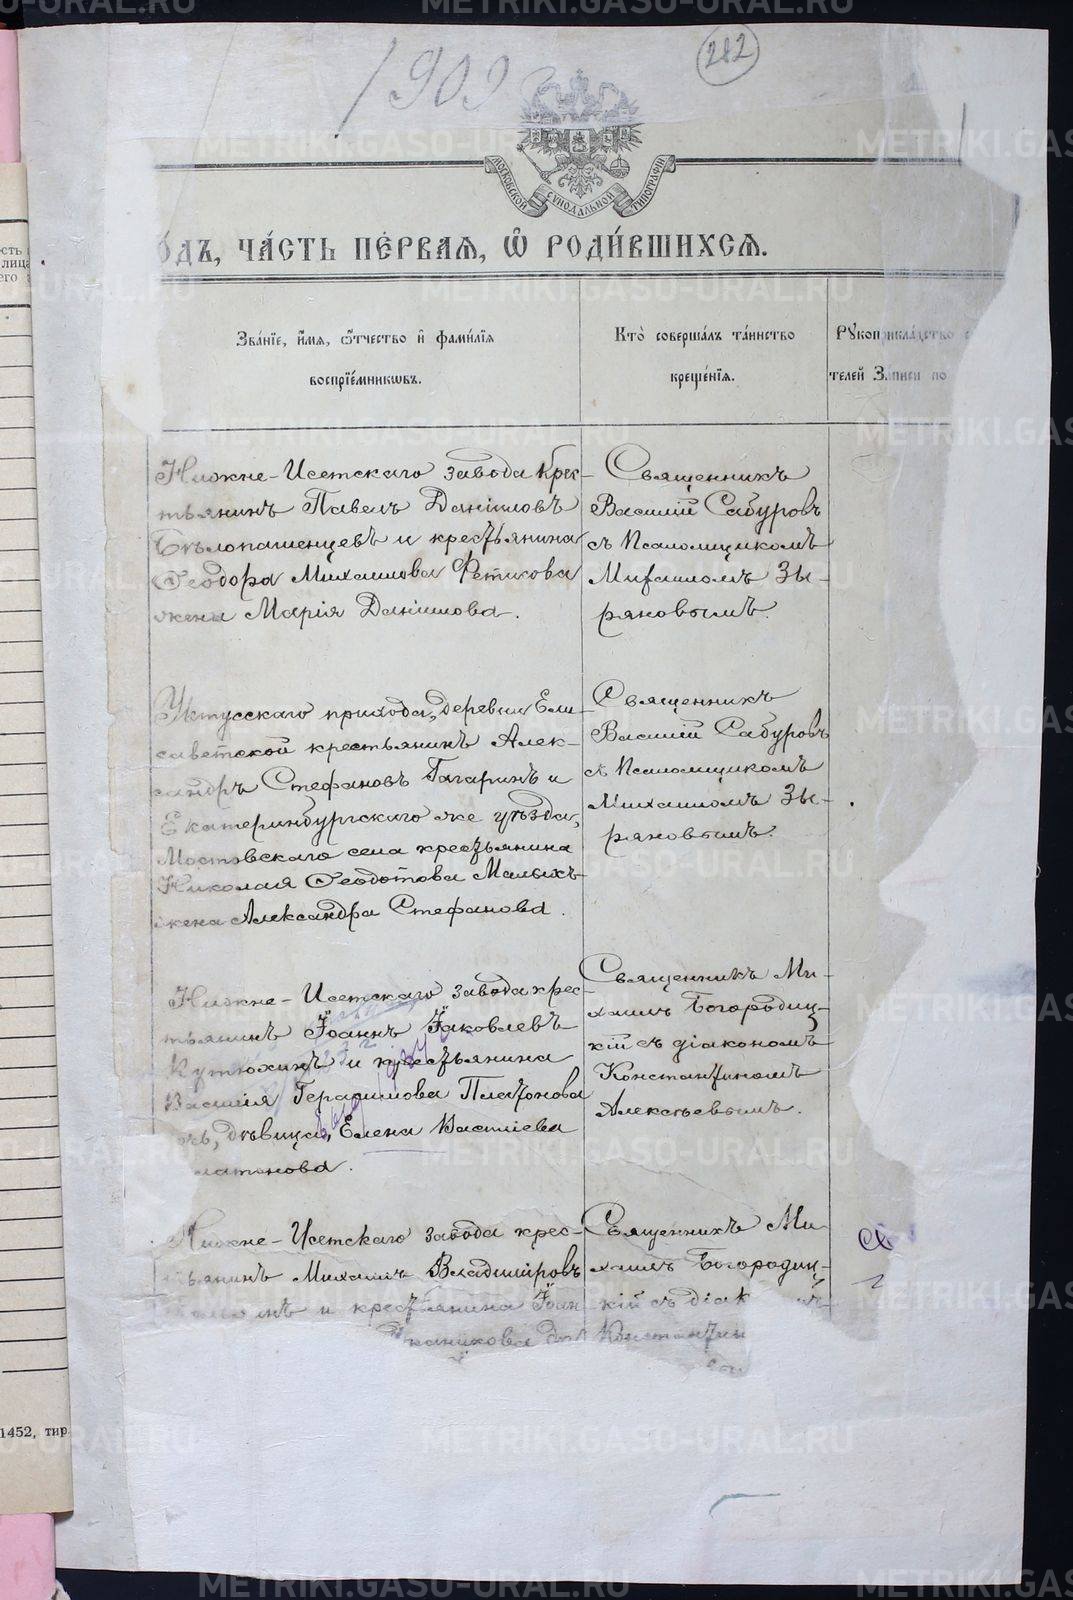 1909
282
МОСКОВСКОЙ СУНОДАЛЬНОЙ ТИПОГРАФІИ
ОДЪ, ЧА́СТЬ ПЕ́РВАЯ, Ѿ РОДИ́ВШИХСЯ.
Зва́нїе, и҆́мя, ѻ҆́тчество и҆ фами́лїя
воспрїе́мниковъ.
Кто̀ соверша́лъ та́инство
креще́нїя.
Рукоприкла́дство
телей За́писи по
Нижне-Исетскаго завода крес-
тьянинъ Павелъ Даніиловъ
Бѣлопашенцевъ и крестьянина
Ѳеодора Михаилова Фетисова
жена Марія Даніилова.
Священникъ
Василій Сабуровъ
съ Псаломщикомъ
Михаиломъ Зы-
ряновымъ.
Уктусскаго прихода, деревни Ели-
саветской крестьянинъ Алек-
сандръ Стефановъ Гагаринъ и
Екатеринбургскаго же уѣзда,
Мостовскаго села крестьянина
Николая Ѳеодотова Малыхъ
жена Александра Стефанова.
Священникъ
Василій Сабуровъ
съ Псаломщикомъ
Михаиломъ Зы-
ряновымъ.
Нижне-Исетскаго завода крес-
тьянинъ Іоаннъ Іаковлевъ
Кутюхинъ и крестьянина
Василія Герасимова Платонова
дочь, дѣвица, Елена Василіева
латонова.
Священникъ Ми-
хаилъ Богородиц-
кій съ діакономъ
Константиномъ
Алексѣевымъ.
Нижне-Исетскаго завода крес-
тьянинъ Михаилъ Владиміровъ
нъ и крестьянина Іоан-
Священникъ Ми-
хаилъ Богородиц-
кій съ діак
Константин
1452, тир.
METRIKI.GASO-URAL.RU